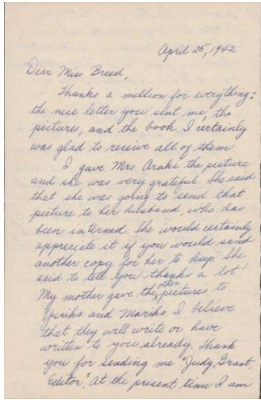 April 25, 1942
Dear Miss Breed,
Thanks a million for everything:
the nice letter you sent me, the
pictures, and the book. I certainly
was glad to receive all of them
I gave Mrs. Araki the picture
and she was very grateful. She said
that she was going to send that
picture to her husband, who has
been interned. She would certainly
appreciate it if you would send
another copy for her to keep. She
said to tell you thanks a lot!
My mother gave the other pictures to
and Mariko. I believe
that they will write or have
written to you already. Thank
you for sending me "Judy Grant,
Editor". At the present time I am